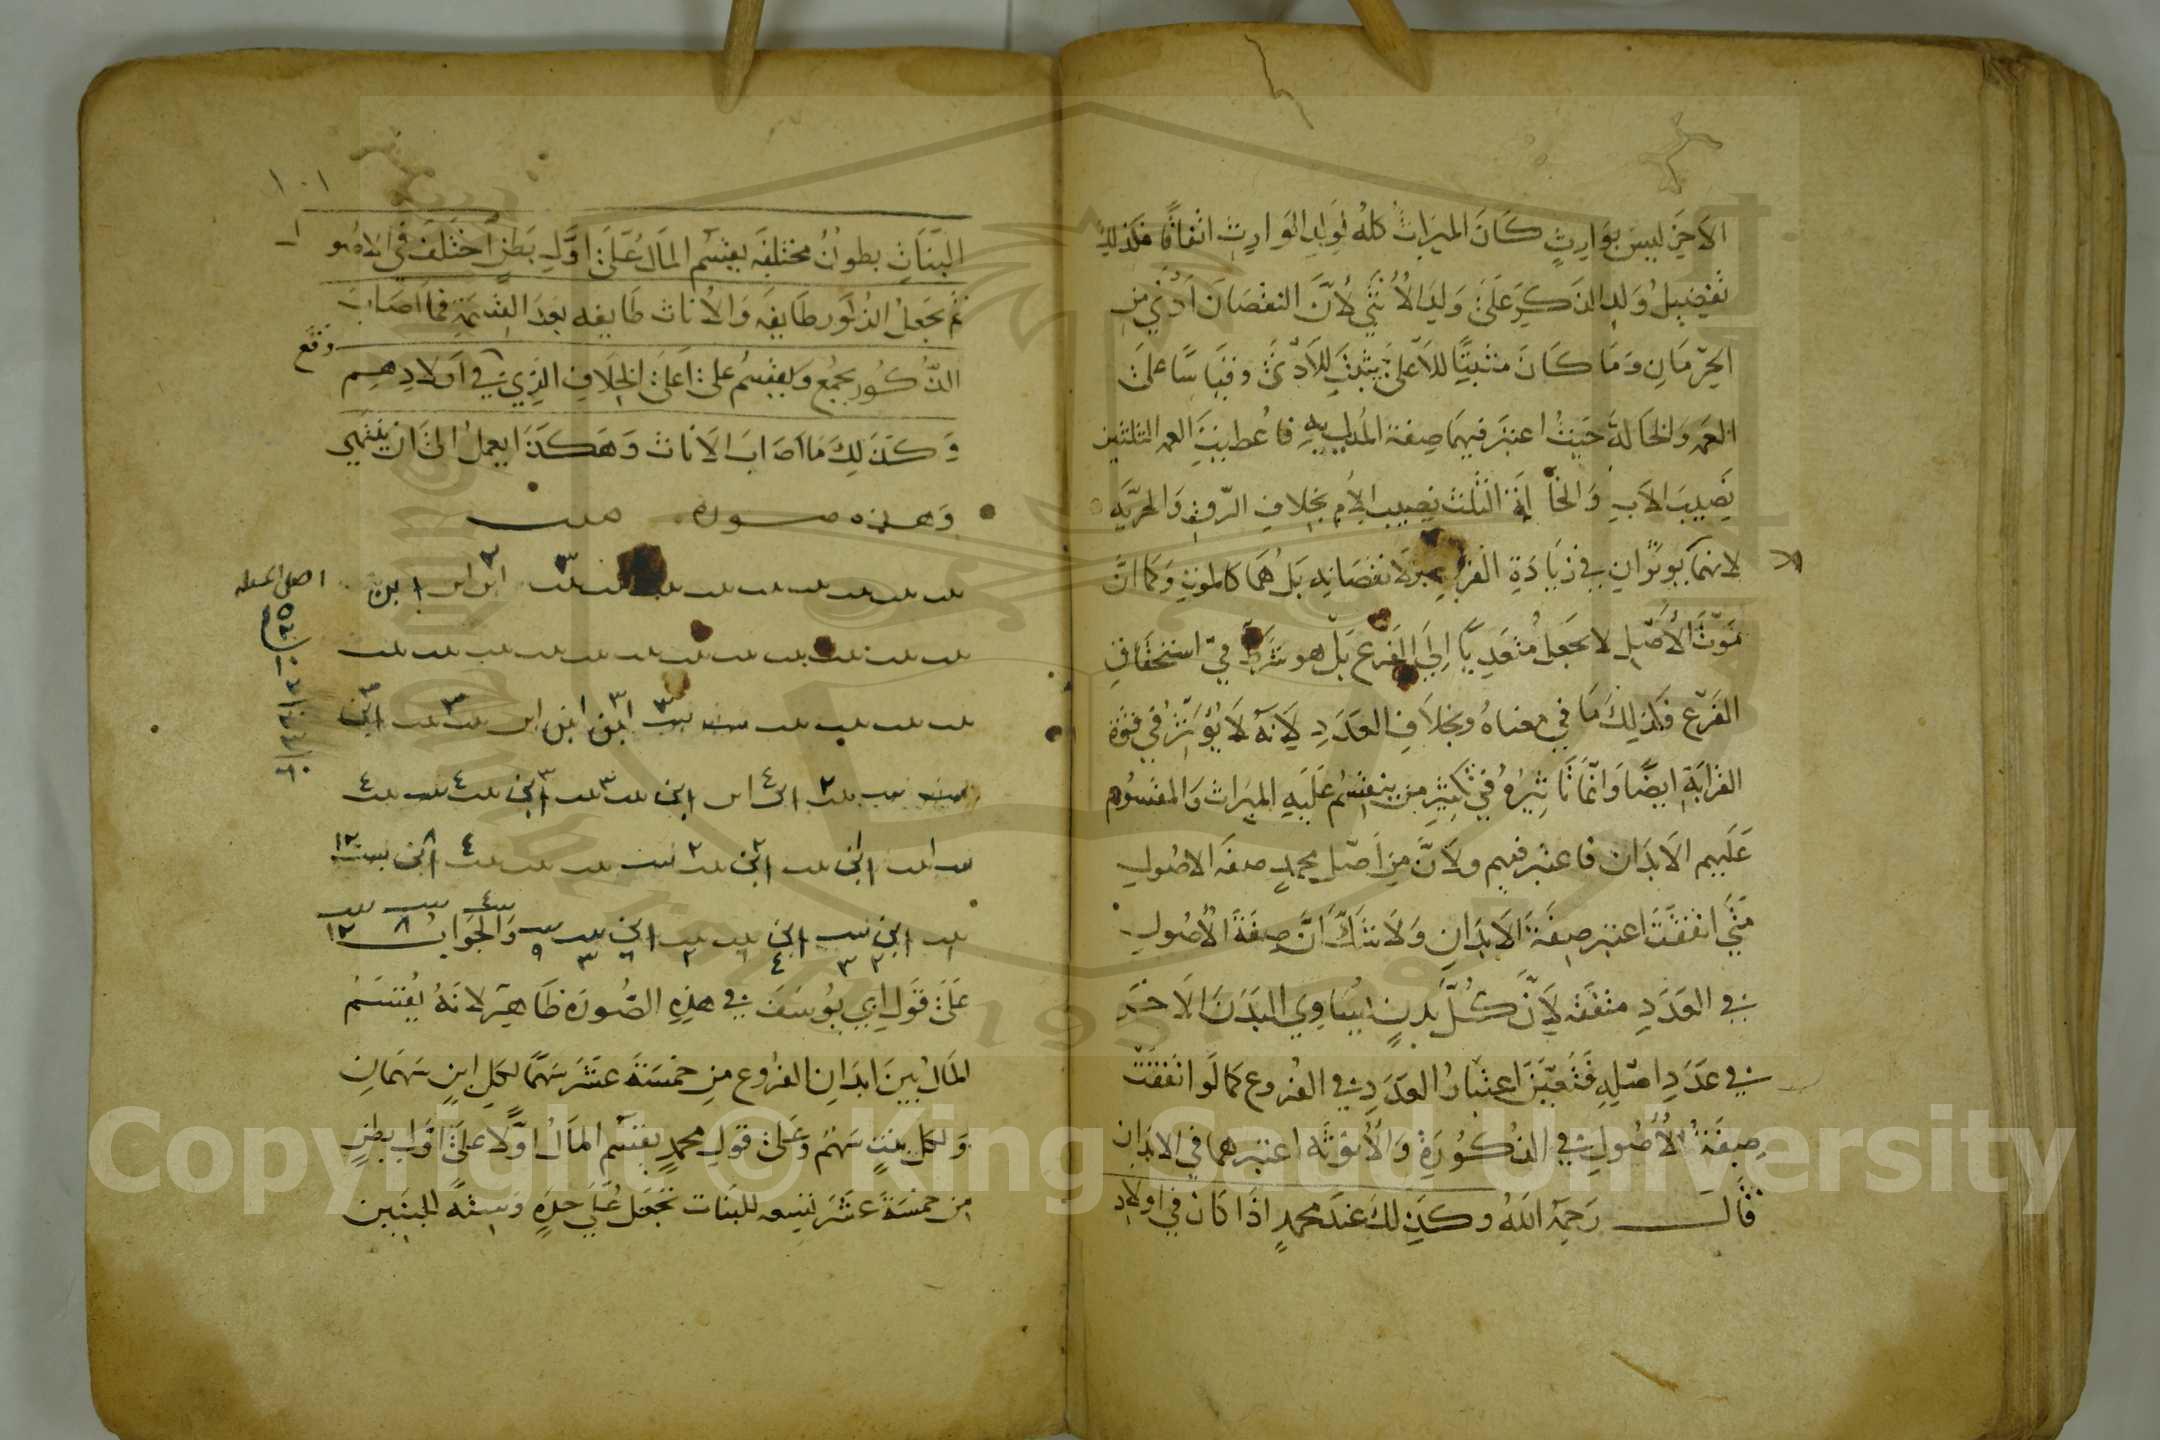 الآخر ليس بوارث كان الميراث كله لولد الوارث اتفاقا فكذلك
تفضيل ولد الذكر على ولد الأنثى لأن النقصان أدنى من
الحرمان وما كان مثبتا للأعلى يثبت للأدنى وقياسا على
العمة والخالة حيث اعتبر فيهما صفة المدلى به فاعطيت العمة الثلثين
نصيب الاب والخالة الثلث نصيب الأم بخلاف الرق والحرية
لانهما يوثران في زيادة القرب ولا نقصانه بل هما كالموت وكما ان
موت الأصل لا يجعل متعديا إلى الفرع بل هو شرط في استحقاق
الفرع فكذلك ما في معناه وبخلاف العدد لانه لا يؤثر في قوة
القرابة ايضا وانما تاثيره في تكثير من ينقسم عليه الميراث والمقسوم
عليهم الابدان فاعتبر فيهم ولان من أصل محمد صفة الاصول
متى اتفقت اعتبر صفة الابدان ولا شك أن صفة الأصول
في العدد متفقة لأن كل بدن يساوي البدن الاخر
في عدد اصله فتعين اعتبار العدد في الفروع كما لو اتفقت
صفة الأصول في الذكورة والأنوثة اعتبرهما في الابدان
قال رحمه الله وكذلك عند محمد اذا كان في اولاد
١٠١
البنات بطون مختلفة يقسم المال على اول بطن اختلف في الاصول
ثم يجعل الذكور طايفة والاناث طايفة بعد القسمة فما اصاب
الذكور يجمع ويقسم على اعلى الخلاف الذي وقع في اولادهم
وكذلك ما اصاب الاناث وهكذا يعمل الى ان ينتهي
وهذه صورة
اصل المسئلة
١٥
بنت بنت بنت بنت بنت بنت بنت بنت بنت ابن ابن ابن
بنت بنت بنت بنت بنت بنت بنت بنت بنت بنت بنت بنت
والجواب
على قول ابي يوسف في هذه الصورة ظاهر لانه يقسم
المال بين ابدان الفروع من خمسة عشر سهما لكل ابن سهمان
ولكل بنت سهم وعلى قول محمد يقسم المال اولا على اول بطن
من خمسة عشر تسعة للبنات تجعل على حدة وستة للبنين